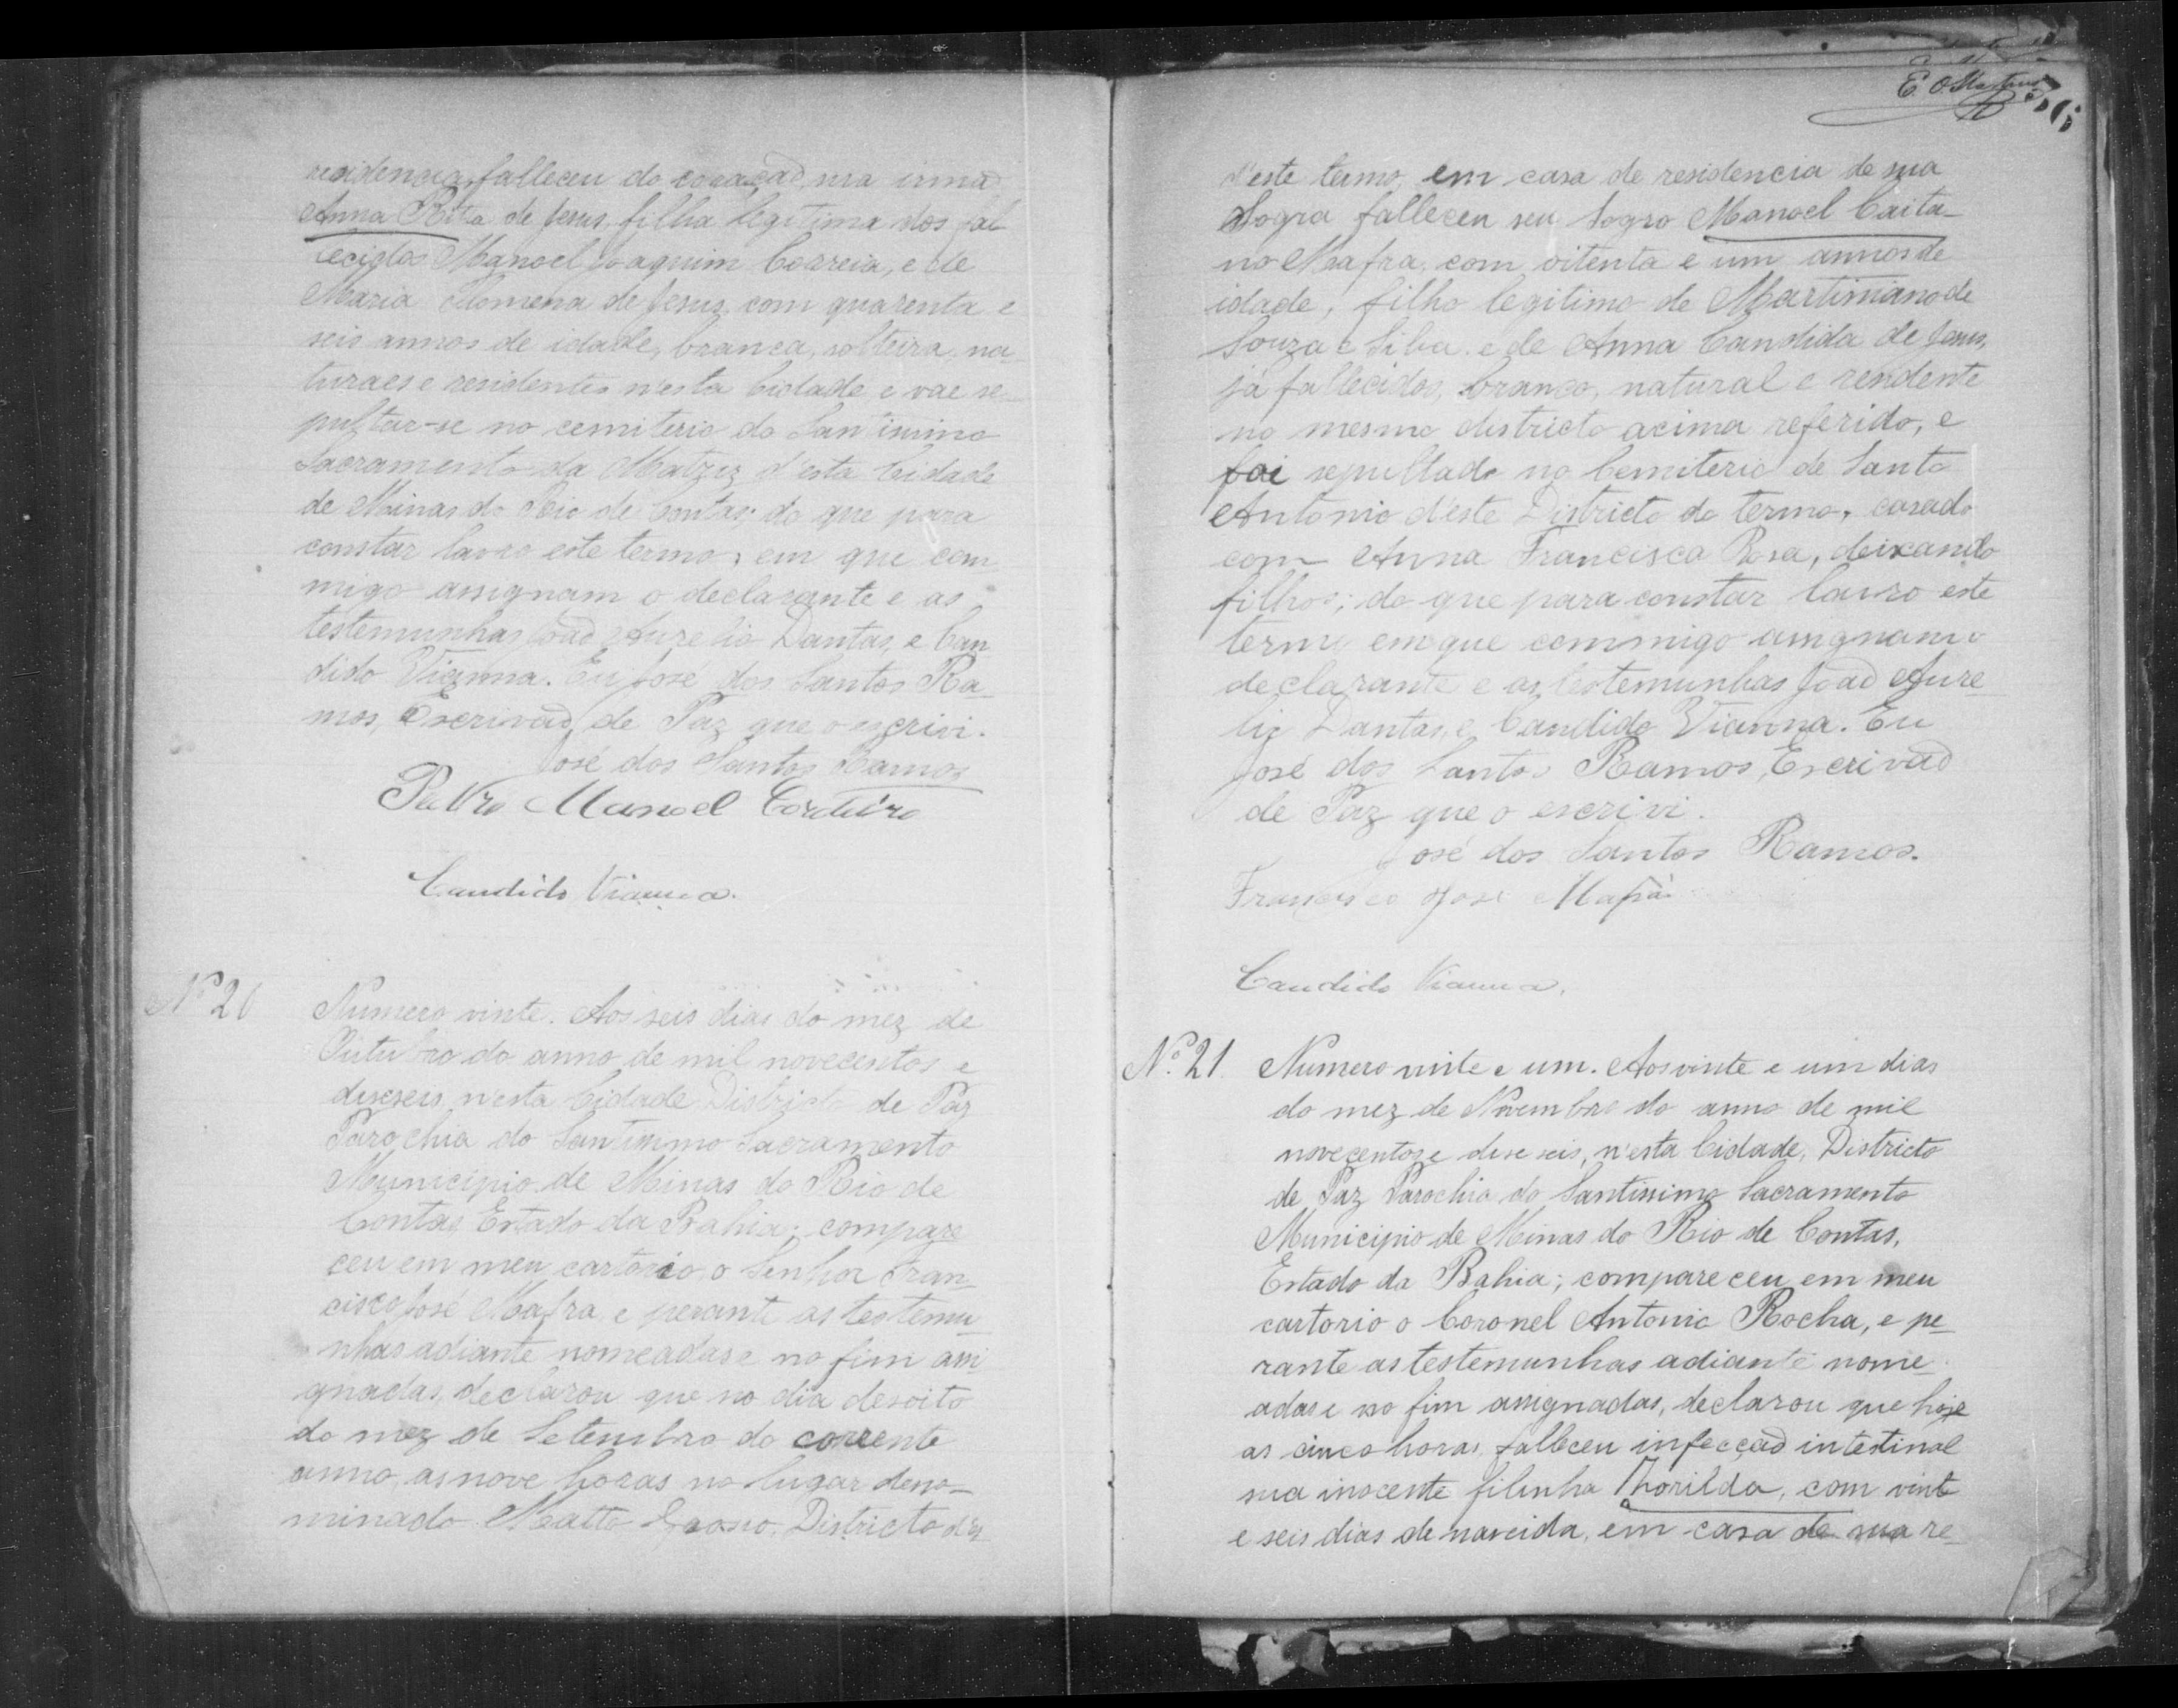 residencia, falleceu do coração, sua irmã
Anna Rita de Jesus, filha legitima dos fal
lecidos Manoel Joaquim Correia, e de
Maria Filomena de Jesus, com quarenta e
seis annos de idade, branca, solteira, na
turaes e residentes n'esta Cidade e vae se
pultar-se no cemiterio do Santissimo
Sacramento da Matriz d'esta Cidade
de Minas do Rio de Contas; do que para
constar lavro este termo, em que com
migo assignam o declarante e as
testemunhas João Aurelio Dantas, e Can
dido Vianna. Eu José dos Santos Ra-
mos, Escrivão de Paz que o escrivi.
José dos Santos Ramos
Pedro Manoel Cordeiro
Candido Vianna.
Nº 20
Numero vinte. Aos seis dias do mez de
Outubro do anno de mil novecentos e
deseseis, n'esta Cidade Districto de Paz
Parochia do Santissimo Sacramento
Municipio de Minas do Rio de
Contas Estado da Bahia; compare
ceu em meu cartorio o Senhor Fran-
cisco José Mafra, e perante as testemu-
nhas adiante nomeadas e no fim assi
gnadas, declarou que no dia desoito
do mez de Setembro do corrente
anno, as nove horas no lugar deno-
minado Matto Grosso, Districto d'es
E. O. Martins
56
d'este termo, em casa de residencia de sua
Sogra falleceu seu Sogro Manoel Caita-
no Mafra, com oitenta e um annos de
idade, filho legitimo de Martiniano de
Souza e Silva e de Anna Candida de Jesus,
já fallecidos, branco, natural e residente
no mesmo districto acima referido, e
foi sepultado no Cemiterio de Santo
Antonio d'este Districto do termo, casado
com Anna Francisca Rosa, deixando
filhos; do que para constar lavro este
termo em que commigo assignam o
declarante e as testemunhas João Aure-
lio Dantas, e Candido Vianna. Eu
José dos Santos Ramos, Escrivão
de Paz que o escrivi.
José dos Santos Ramos.
Francisco José Mafra
Candido Vianna.
Nº 21
Numero vinte e um. Aos vinte e um dias
do mez de Novembro do anno de mil
novecentos e dese seis, n'esta Cidade, Districto
de Paz Parochia do Santissimo Sacramento
Municipio de Minas do Rio de Contas,
Estado da Bahia; compareceu em meu
cartorio o Coronel Antonio Rocha, e pe-
rante as testemunhas adiante nome-
adas e no fim assignadas, declarou que hoje
as cinco horas, falleceu infecção intestinal
sua inocente filinha Thorilda, com vinte
e seis dias de nascida, em casa de sua re-